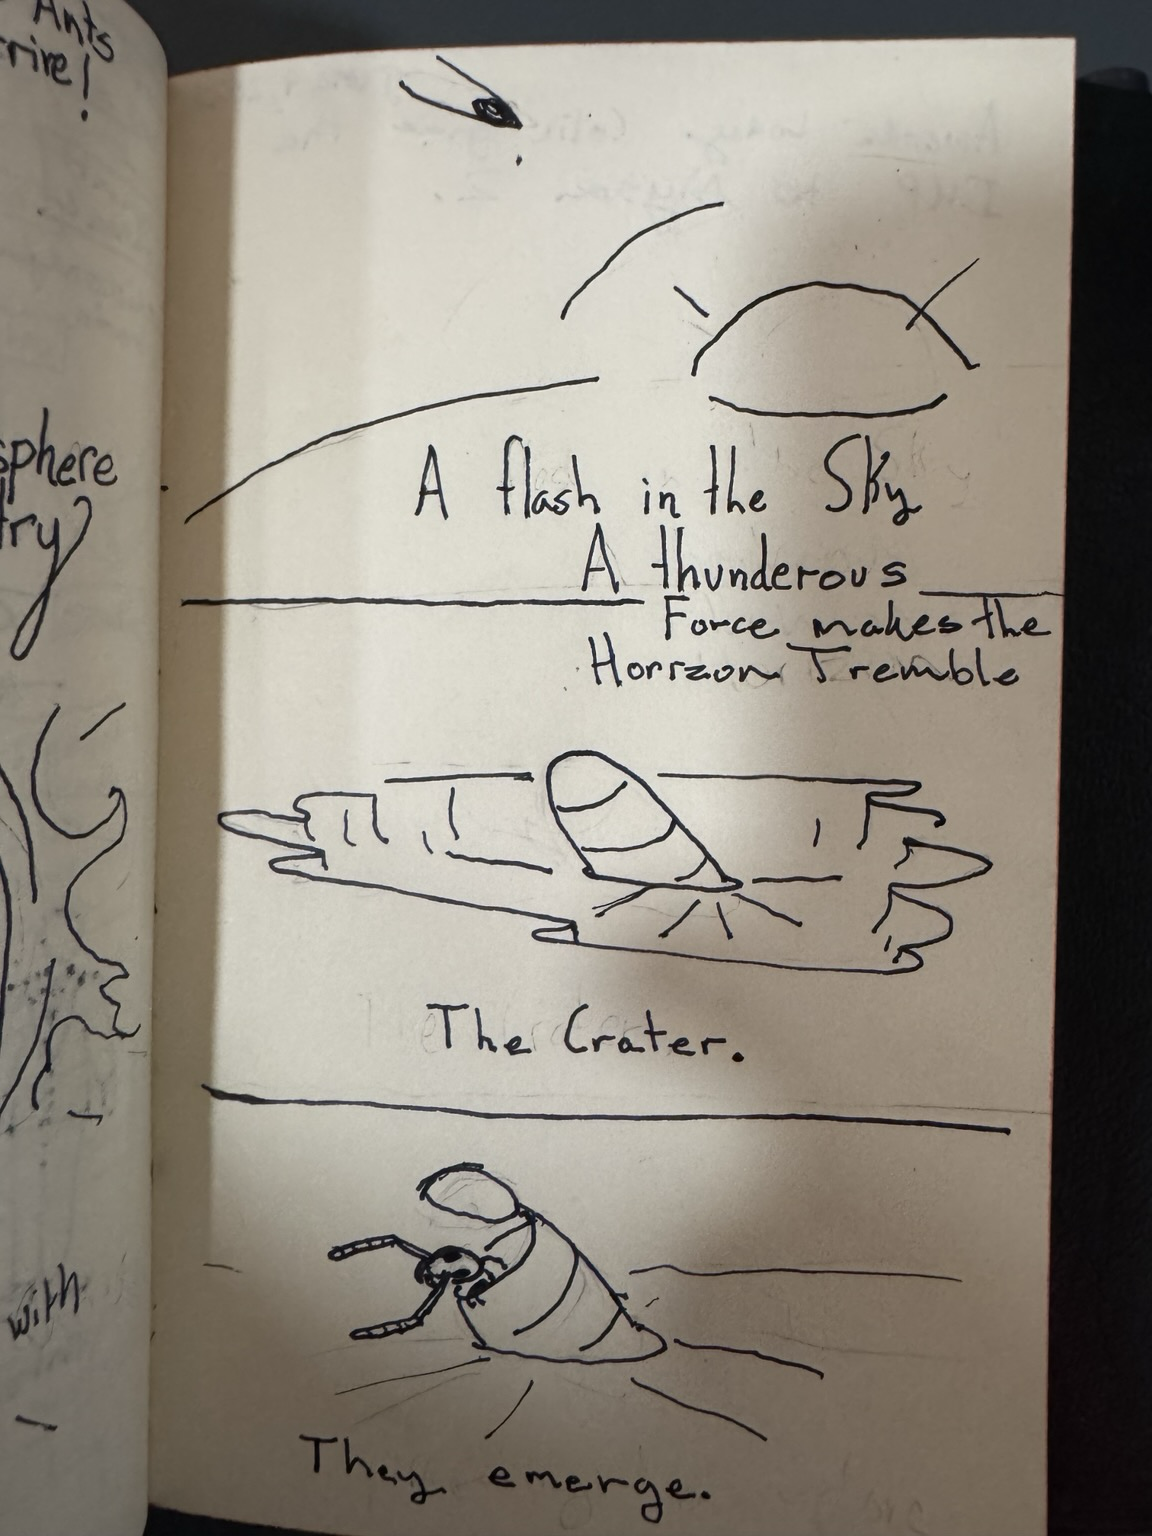 Ants
rrive!
sphere
try
with
A flash in the Sky
A thunderous
Force makes the
Horrzon Tremble
The Crater.
They emerge.